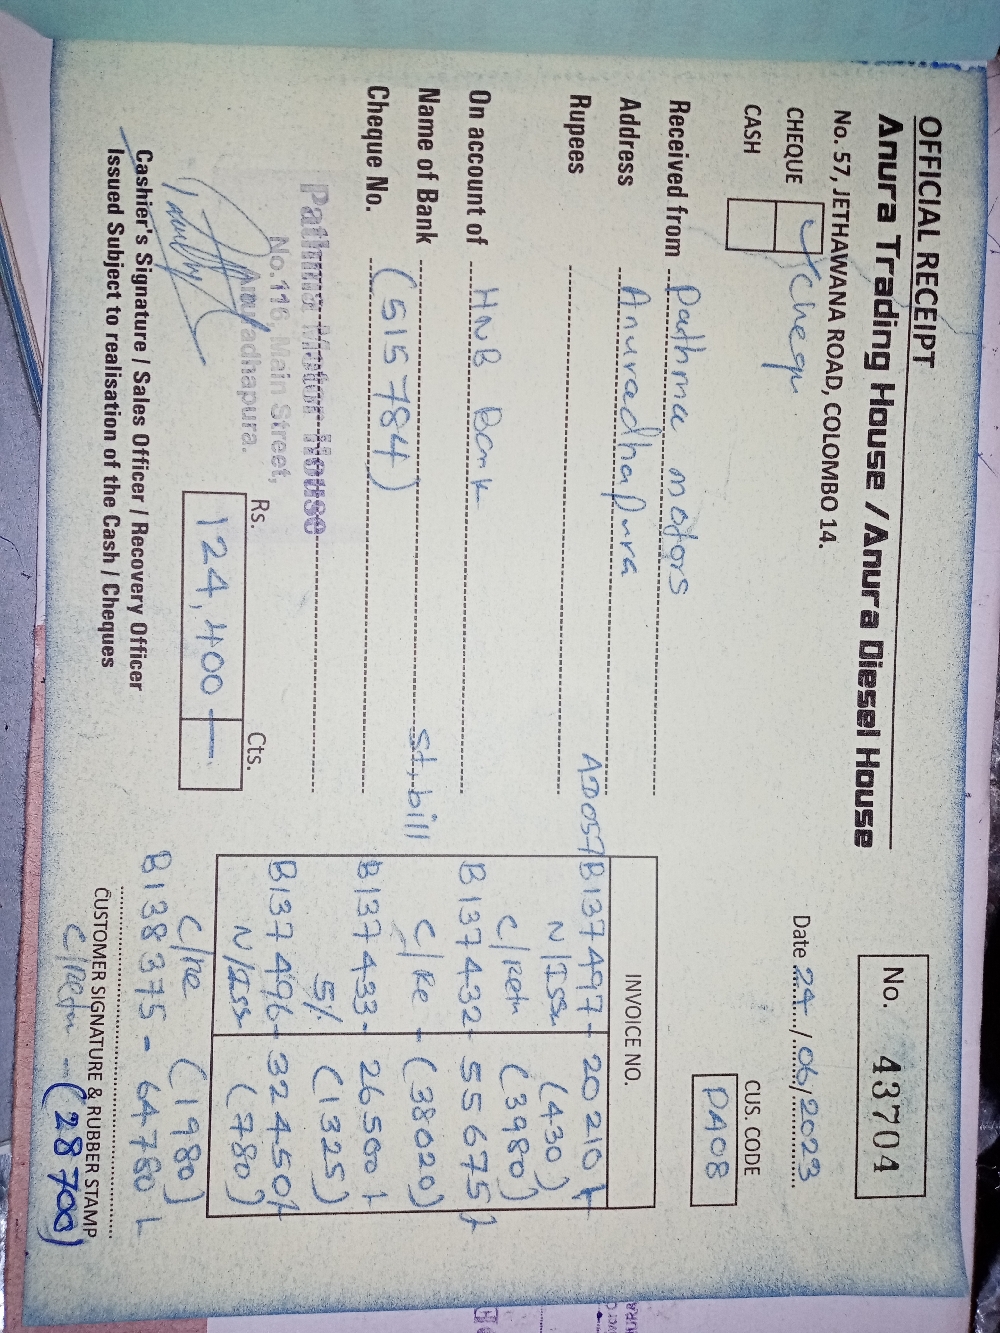 OFFICIAL RECEIPT
Anura Trading House / Anura Diesel House
No. 57, JETHAWANA ROAD, COLOMBO 14.
No. 43704
CHEQUE Cheque
CASH
Date 24/06/2023
CUS. CODE
PA08
Received from Pathma motors
Address Anuradhapura
Rupees
On account of HNB Bank
Name of Bank
Cheque No. (515784)
Pathma Motor House
No.116, Main Street,
Anuradhapura.
Rs. Cts.
124,400 —
Cashier's Signature / Sales Officer / Recovery Officer
Issued Subject to realisation of the Cash / Cheques
INVOICE NO.
AD057 B137497 - 20210
N/Iss (430)
C/Retn (3980)
B137432 - 55675
St, bill C/Re - (38020)
B137433 - 26500
5% (1325)
B137496 - 32450
N/Iss (780)
C/Re (1980)
B138375 - 64780
CUSTOMER SIGNATURE & RUBBER STAMP
C/Retn - (28700)